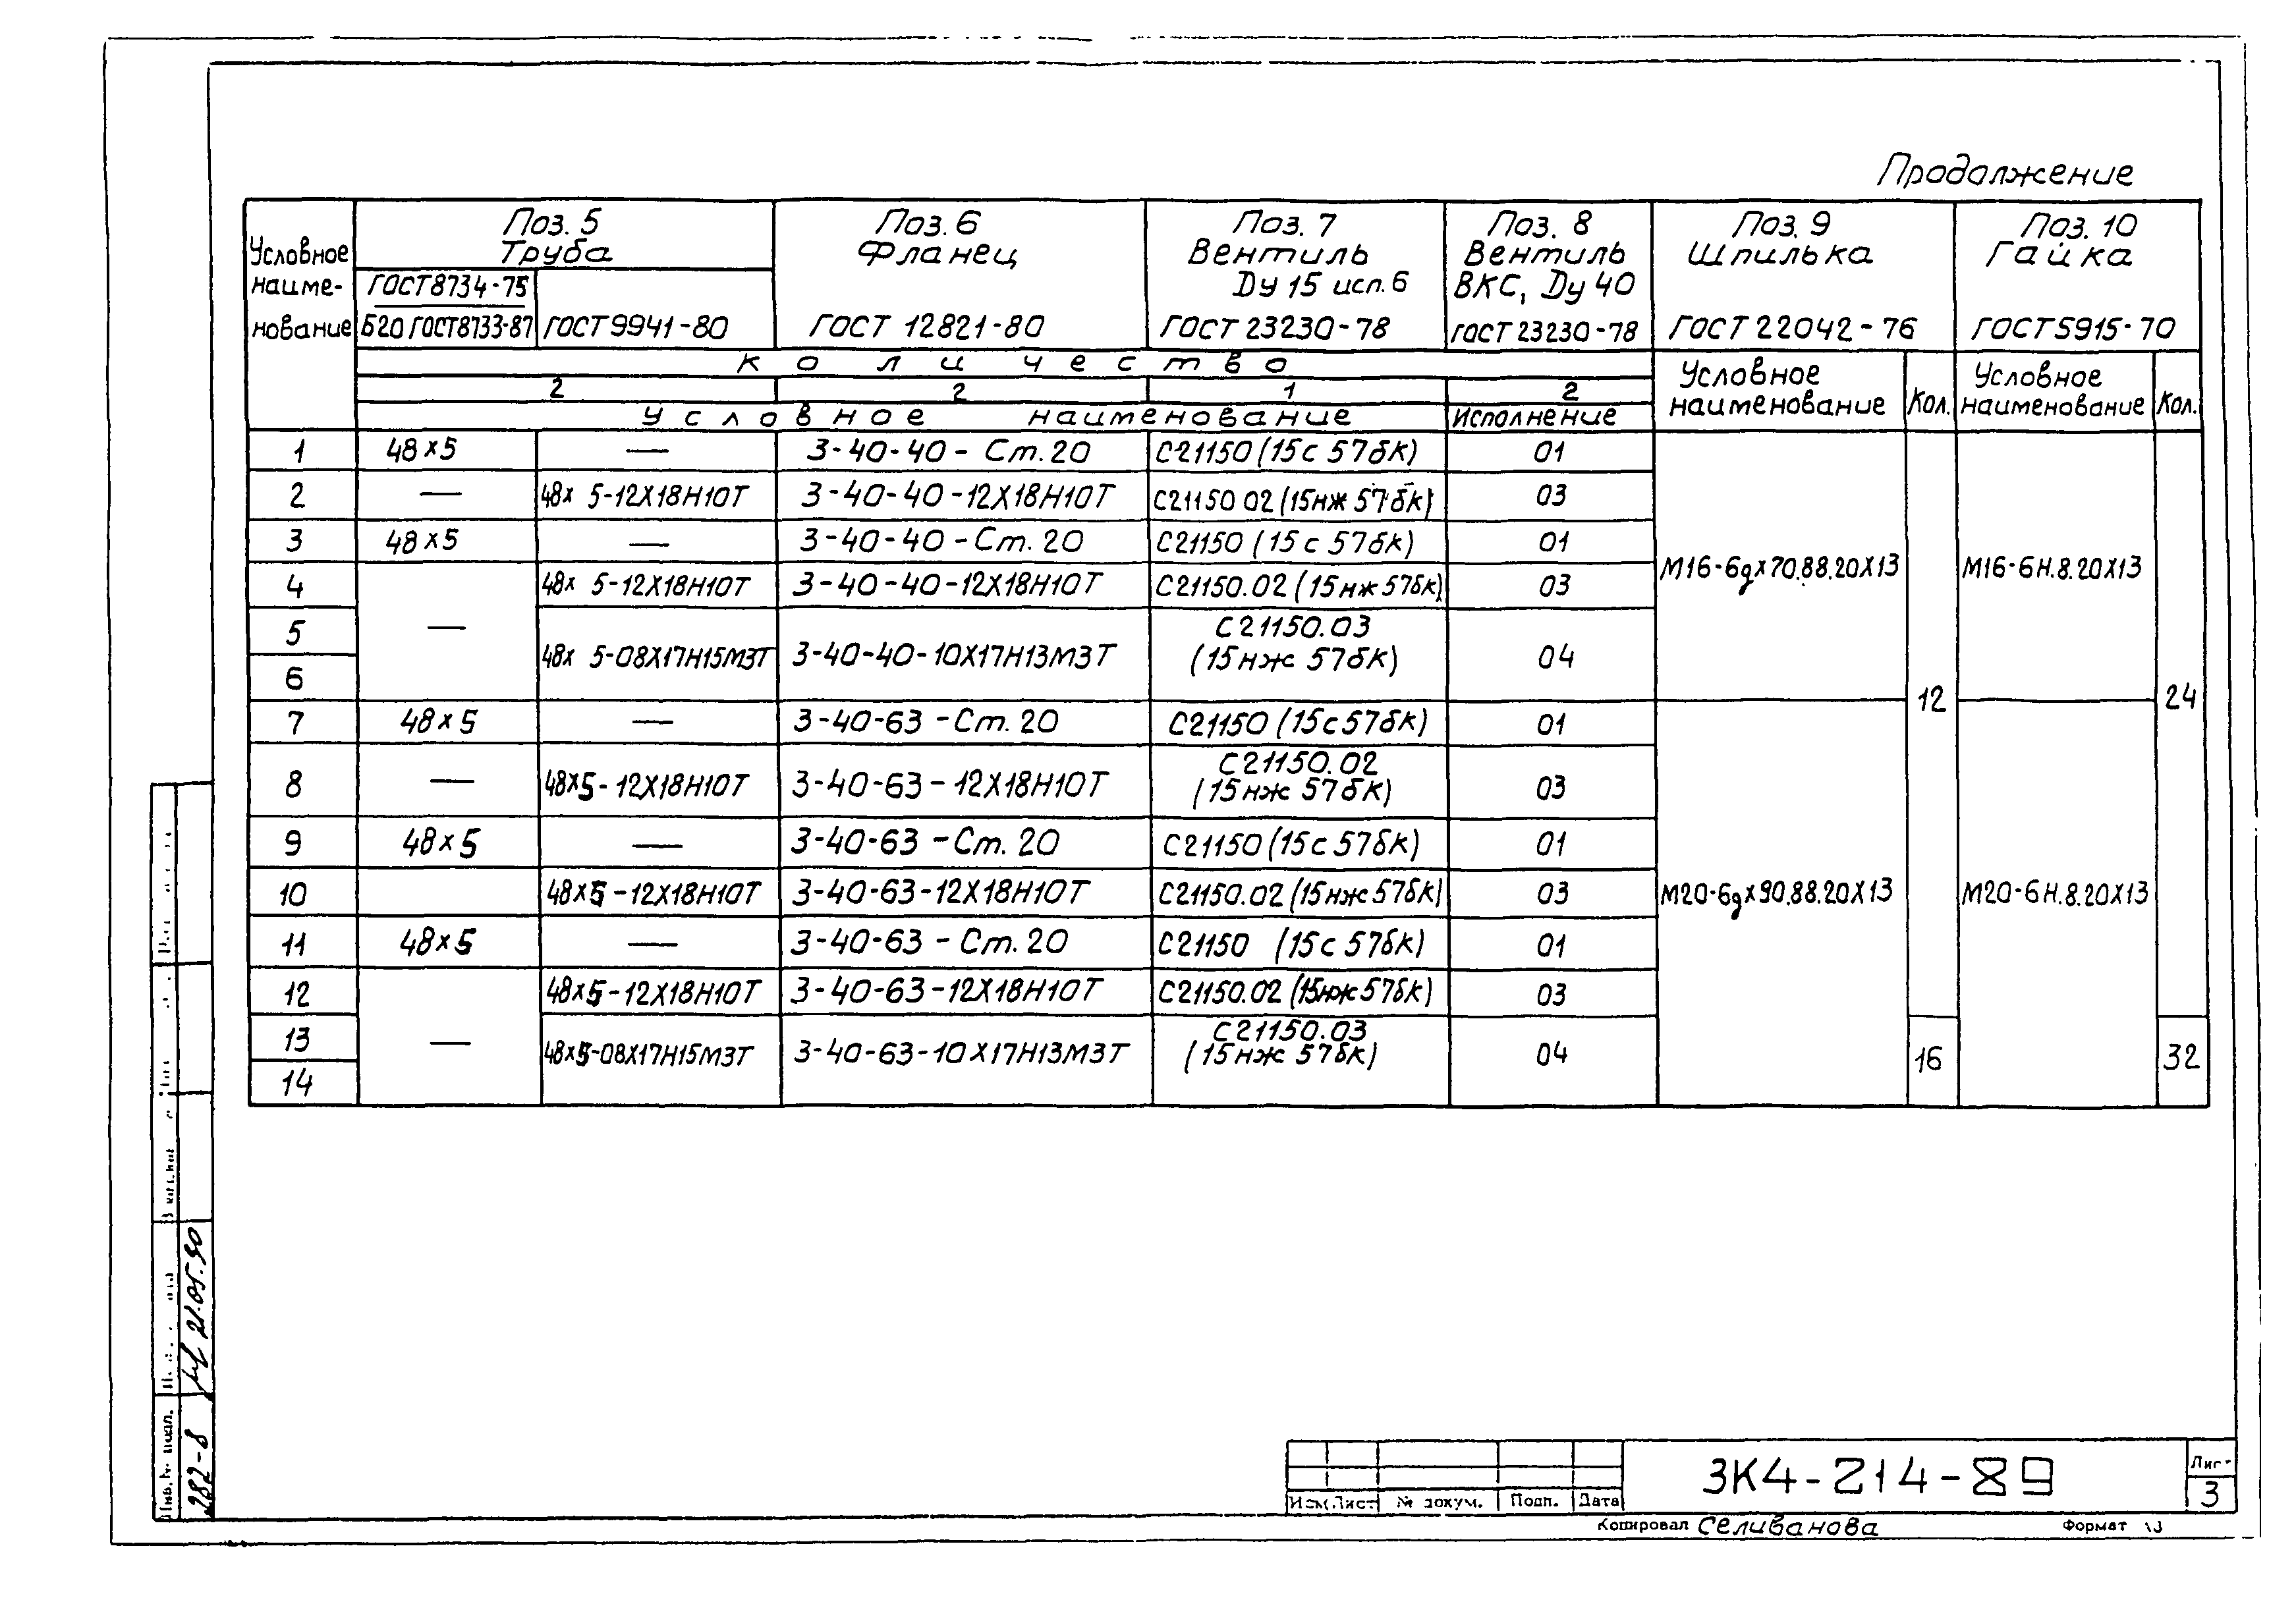 Продолжение
Условное наиме-нование
Поз. 5 Труба
ГОСТ8734-75
Б20 ГОСТ8733-87
ГОСТ9941-80
Поз. 6 Фланец ГОСТ 12821-80
Поз. 7 Вентиль Dу 15 исп. 6 ГОСТ 23230-78
Поз. 8 Вентиль ВКС, Dу 40 ГОСТ 23230-78
Поз. 9 Шпилька ГОСТ 22042-76
Поз. 10 Гайка ГОСТ5915-70
Количество
2 2 1 2
Условное наименование
Исполнение
Условное наименование Кол.
Условное наименование Кол.
1 48×5 — 3-40-40-Ст.20 С21150 (15с 57бк) 01
2 — 48× 5-12Х18Н10Т 3-40-40-12Х18Н10Т С21150 02 (15нж 57бк) 03
3 48×5 — 3-40-40-Ст.20 С21150 (15с 57бк) 01
М16-6g×70.88.20Х13 М16-6Н.8.20Х13
4 48× 5-12Х18Н10Т 3-40-40-12Х18Н10Т С21150.02 (15нж 57бк) 03
—
5
6
48× 5-08Х17Н15М3Т 3-40-40-10Х17Н13М3Т С21150.03 (15нж 57бк) 04
12 24
7 48×5 — 3-40-63-Ст.20 С21150 (15с57бк) 01
8 — 48×5-12Х18Н10Т 3-40-63-12Х18Н10Т С21150.02 (15нж 57бк) 03
9 48×5 — 3-40-63-Ст.20 С21150 (15с57бк) 01
10 48×5-12Х18Н10Т 3-40-63-12Х18Н10Т С21150.02 (15нж 57бк) 03
М20-6g×90.88.20Х13 М20-6Н.8.20Х13
11 48×5 — 3-40-63-Ст.20 С21150 (15с 57бк) 01
12 48×5-12Х18Н10Т 3-40-63-12Х18Н10Т С21150.02 (15нж 57бк) 03
13
14
— 48×5-08Х17Н15М3Т 3-40-63-10Х17Н13М3Т С21150.03 (15нж 57бк) 04
16 32
21.05.90
Инв.№ подл.
282-8
Изм. Лист № докум. Подп. Дата
ЗК4-214-89
Лист
3
Копировал Селиванова
Формат